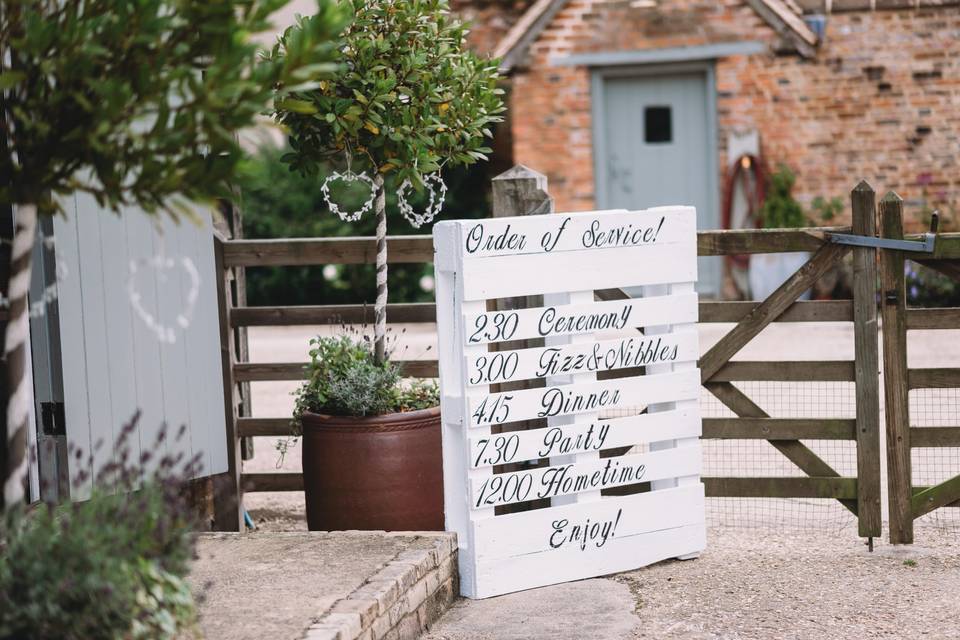 Order of Service!
2.30 Ceremony
3.00 Fizz & Nibbles
4.15 Dinner
7.30 Party
12.00 Hometime
Enjoy!